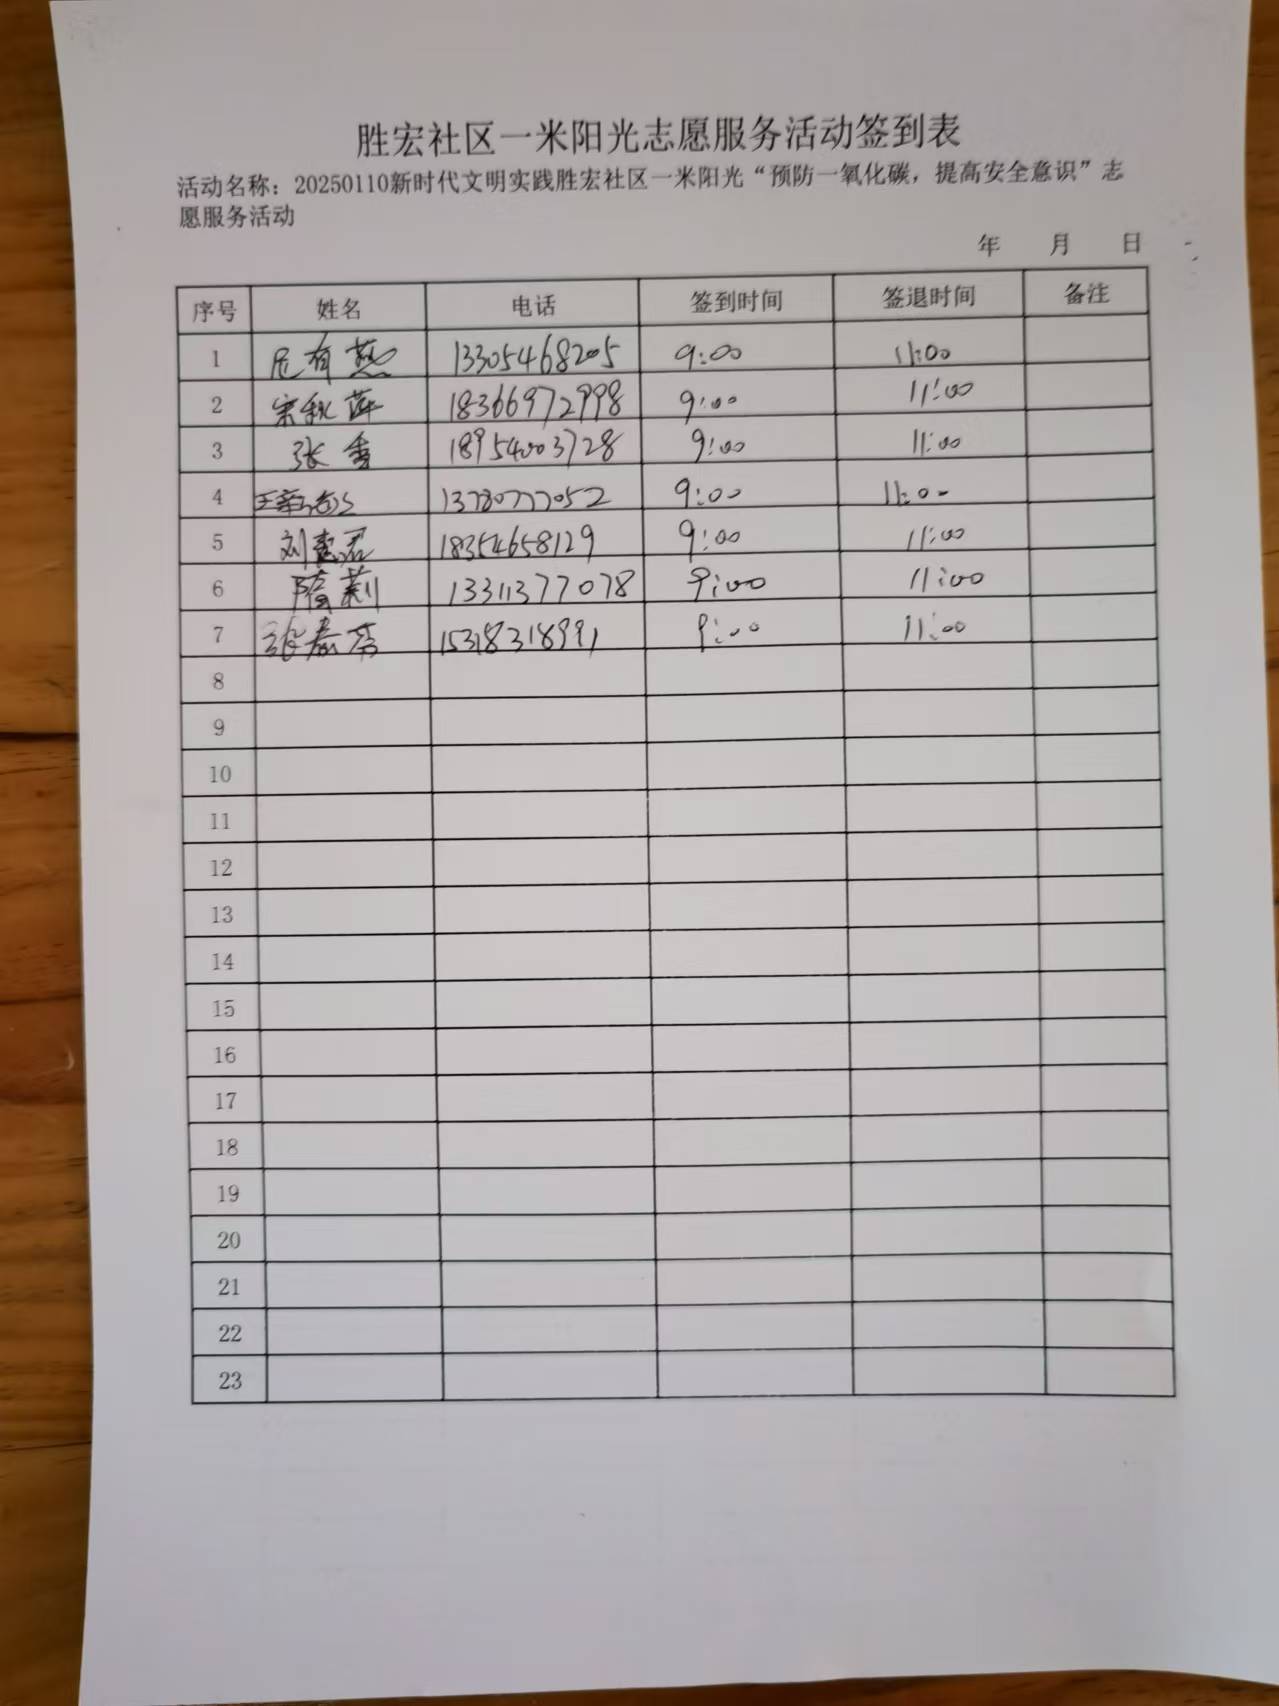 胜宏社区一米阳光志愿服务活动签到表
活动名称：20250110新时代文明实践胜宏社区一米阳光“预防一氧化碳，提高安全意识”志
愿服务活动
年 月 日
序号 姓名 电话 签到时间 签退时间 备注
1 13305468205 9:00 11:00
2 宋秋萍 18366972998 9:00 11:00
3 张香 18954003728 9:00 11:00
4 13780777052 9:00 11:00
5 刘惠君 18354658129 9:00 11:00
6 隋莉 13311377078 9:00 11:00
7 张春芳 15318318991 9:00 11:00
8
9
10
11
12
13
14
15
16
17
18
19
20
21
22
23